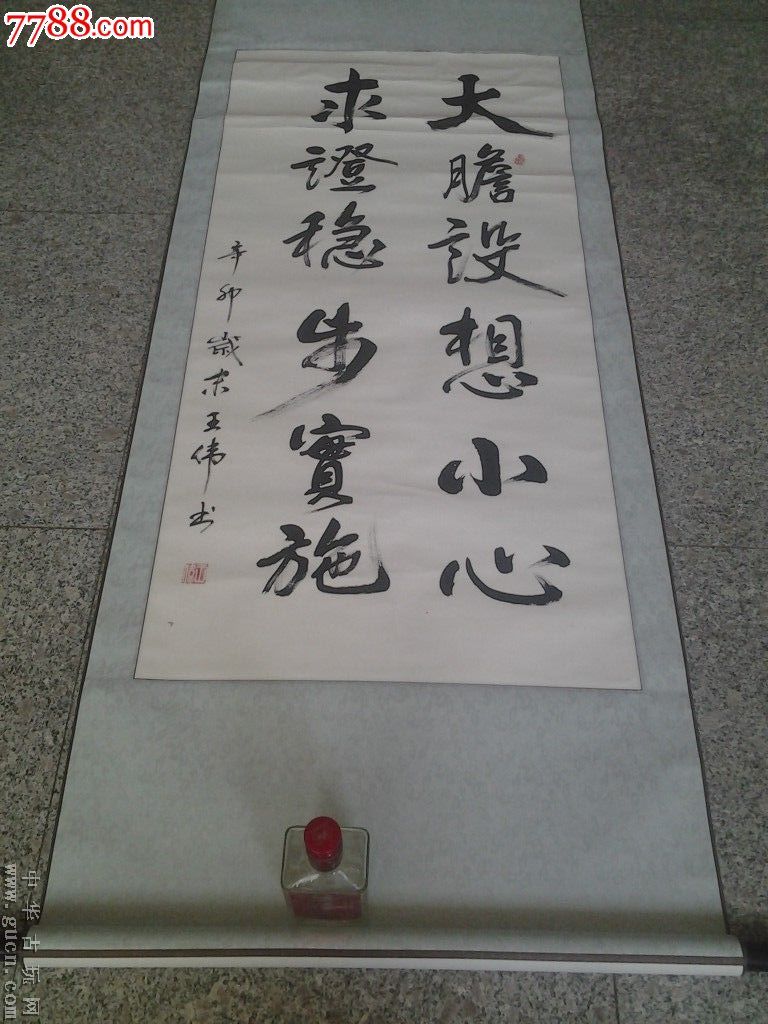 7788.com
大膽設想小心
求證稳步實施
辛卯歲末王伟书
中华古玩网
www.gucn.com